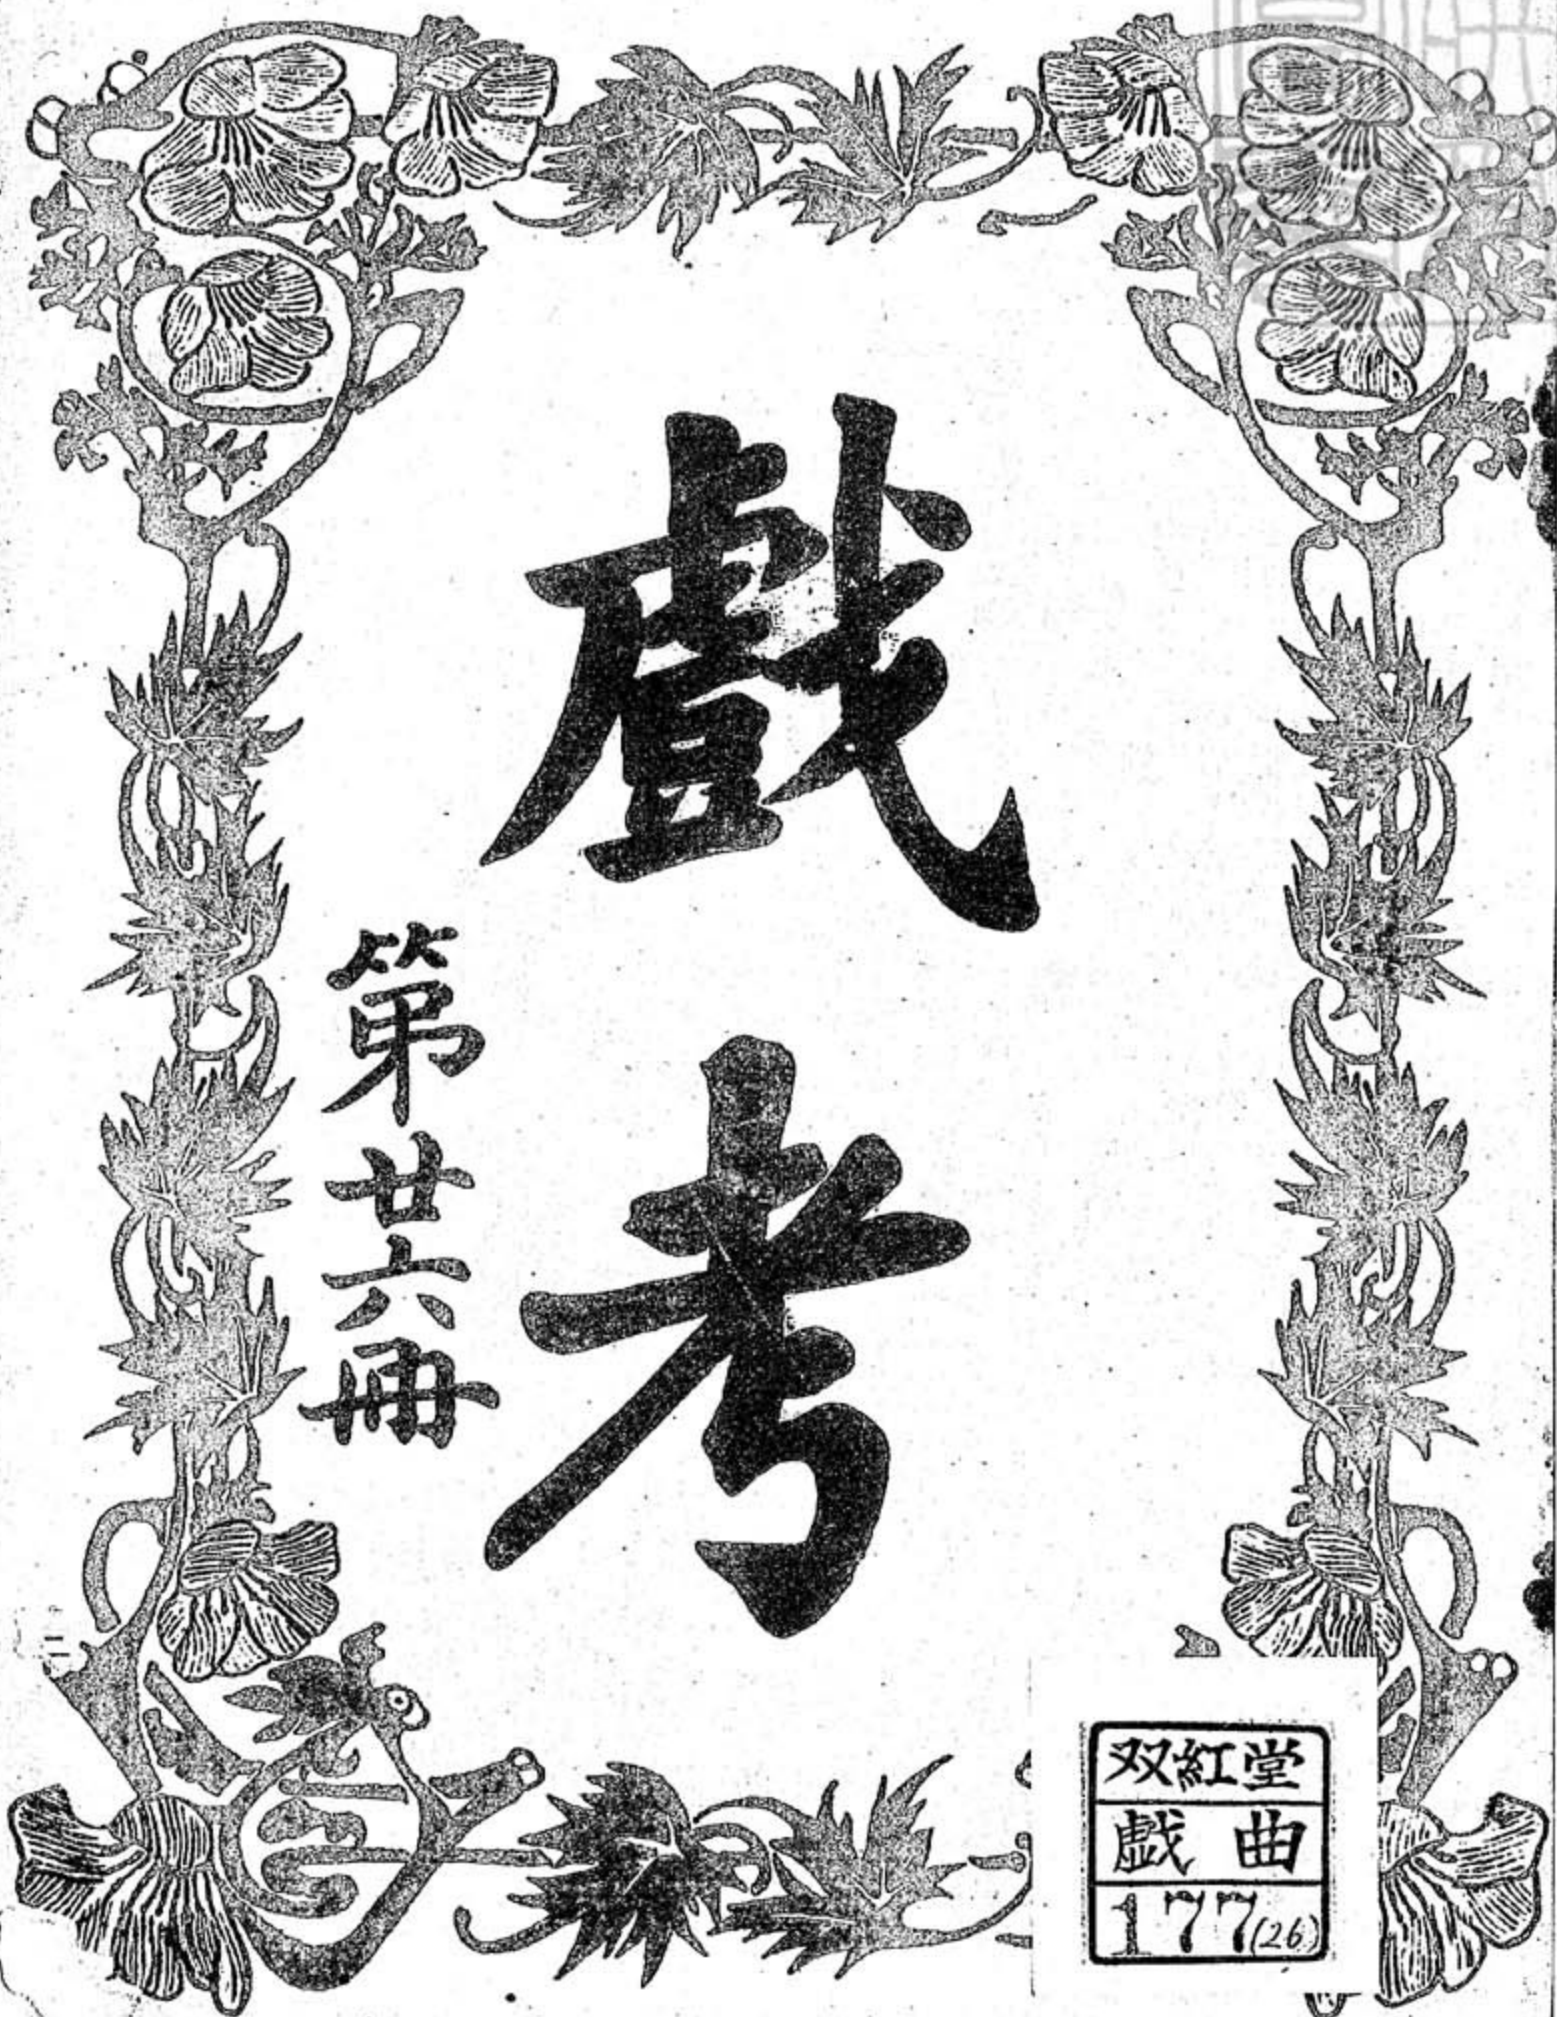 戲考
第廿六冊
双紅堂
戯曲
177(26)